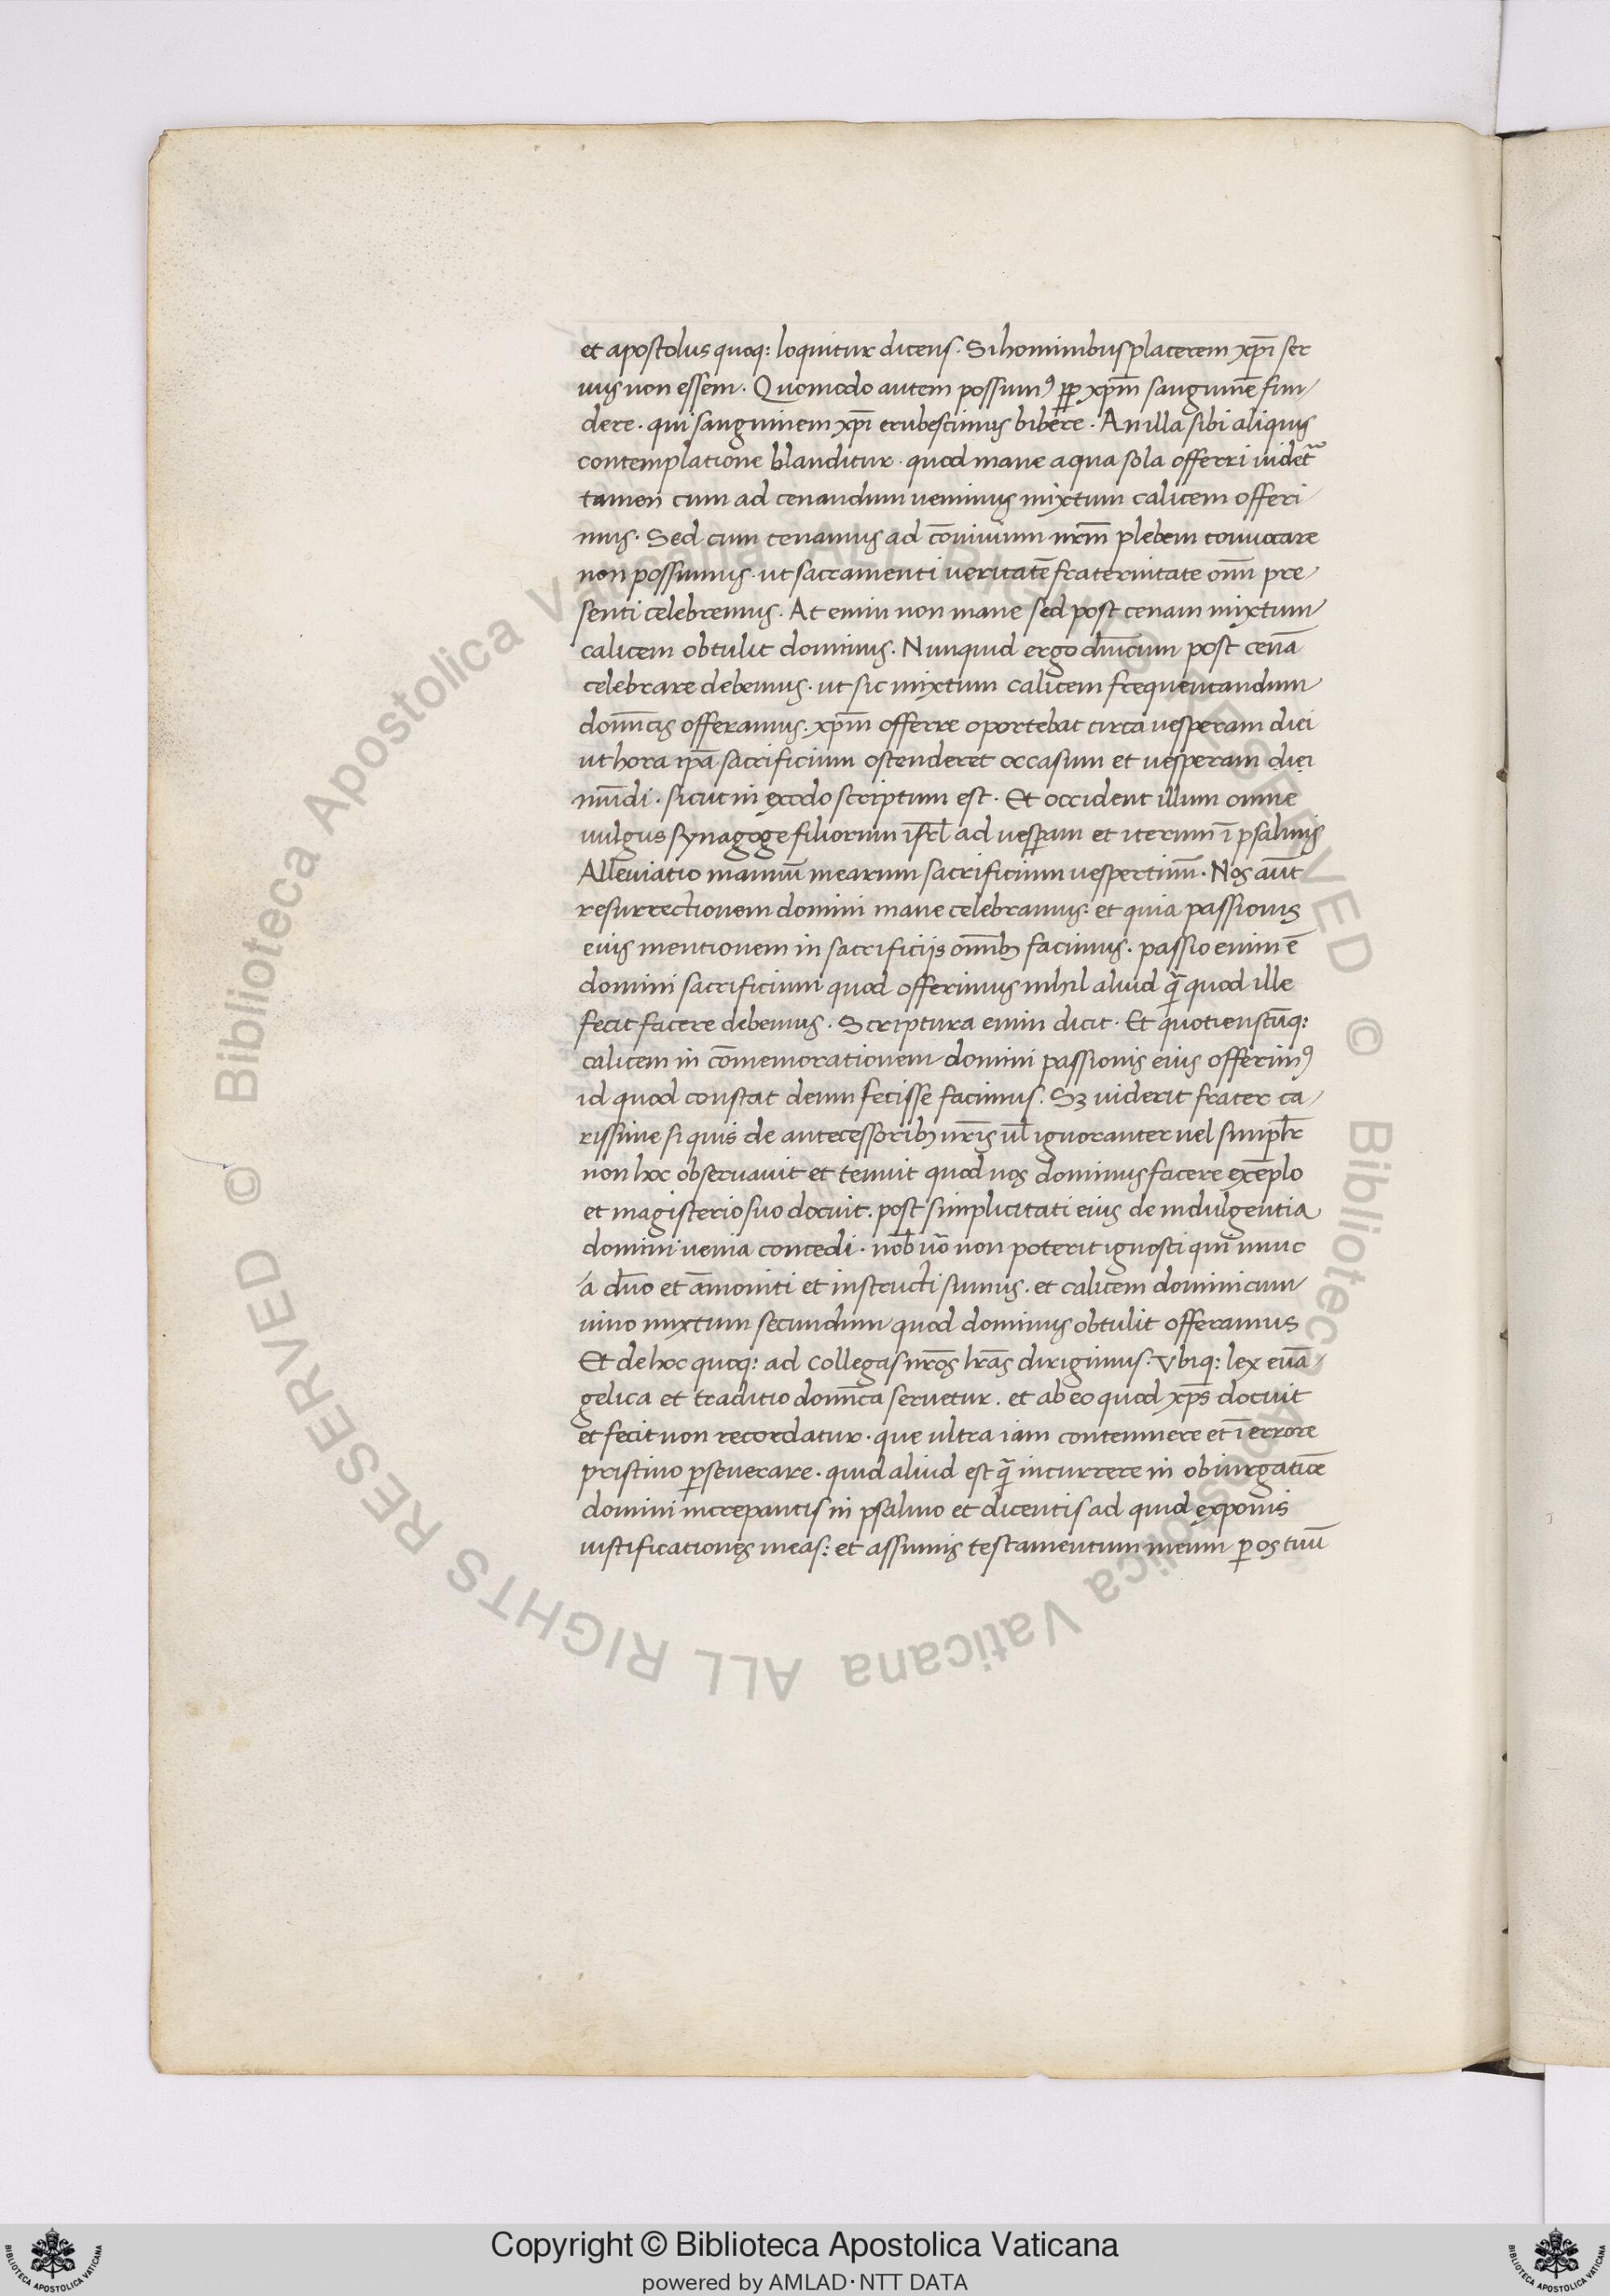 et apostolus quoq: loquitur dicens. Si hominibus placerem xp̄i ser
uus non essem. Quomodo autem possumꝰ ꝓp xp̄m sanguinē fun
dere. qui sanguinem xp̄i erubescimus bibere. An illa sibi aliquis
contemplatione blanditur. quod mane aqua sola offerri uidet᷑
tamen cum ad cenandum uenimus mixtum calicem offeri
mus. Sed cum cenamus ad cōuiuium nr̄m plebem conuocare
non possumus. ut sacramenti ueritatē fraternitate om̄i pre
senti celebremus. At enim non mane sed post cenam mixtum
calicem obtulit dominus. Nunquid ergo dn̄icum post cenā
celebrare debemus. ut sic mixtum calicem frequentandum
domīcis offeramus. xp̄m offerre oportebat circa uesperam diei
ut hora ip̄a sacrificium ostenderet occasum et uesperam diei
mūdi. sicut in exodo scriptum est. Et occident illum omne
uulgus synagoge filiorum isr̄l ad uesꝑam et iterum ī psalmis
Alleuiatio manuū mearum sacrificium uespertinū. Nos aūt
resurrectionem domini mane celebramus: et quia passionis
eius mentionem in sacrificiis om̄ibꝫ facimus. passio enim ē
domini sacrificium quod offerimus nihil aliud qᷓ quod ille
fecit facere debemus. Scriptura enim dicit. Et quotienscūq:
calicem in cōmemorationem domini passionis eius offerimꝰ
id quod constat deum fecisse facimus. Sꝫ uiderit frater ca
rissime si quis de antecessoribꝫ nr̄is ul̄ ignoranter uel simpl̄r
non hoc obseruauit et tenuit quod nos dominus facere exēplo
et magisterio suo docuit. post simplicitati eius de indulgentia
domini uenia concedi. nob̄ uō non poterit ignosci qui nunc
a dn̄o et āmoniti et instructi sumus. et calicem dominicum
uino mixtum secundum quod dominus obtulit offeramus
Et de hoc quoq: ad collegas nr̄os lr̄as dirigimus. Vbiq: lex euā
gelica et traditio domīca seruetur. et ab eo quod xp̄s docuit
et fecit non recordatur. que ultra iam contemnere et ī errore
pristino ꝑseuerare. quid aliud est qᷓ incurrere in obiurgatiōe
domini increpantis in psalmo et dicentis ad quid exponis
iustificationes meas: et assumis testamentum meum ꝑ os tuū
© Biblioteca Apostolica Vaticana ALL RIGHTS RESERVED © Biblioteca Apostolica Vaticana ALL RIGHTS RESERVED
Copyright © Biblioteca Apostolica Vaticana
powered by AMLAD·NTT DATA
BIBLIOTECA APOSTOLICA VATICANA
BIBLIOTECA APOSTOLICA VATICANA